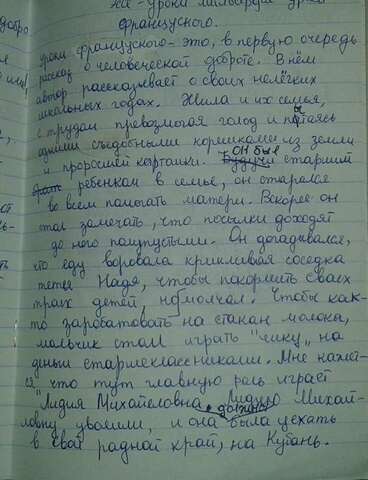 уроки
французского.
уроки французского - это, в первую очередь
рассказ о человеческой доброте. В нём
автор рассказывает о своих нелёгких
школьных годах. Жила и их семья,
с трудом превозмогая голод и питаясь
одними съедобными корешками из земли
и проросшей картошки. он был старший
ребенком в семье, он старался
во всём помогать матери. Вскоре он
стал замечать, что посылки доходят
до него полупустыми. Он догадывался,
что еду воровала крикливая соседка
тетея Надя, чтобы покормить своих
троих детей, но молчал. Чтобы как-
то заработовать на стакан молока,
мальчик стал играть "чику" на
деньги старшеклассниками. Мне кажет-
ся что тут главную роль играет
Лидия Михайловна. Лидию Михай-
ловну уволили, и она должна была уехать
в свой радной край, на Кубань.